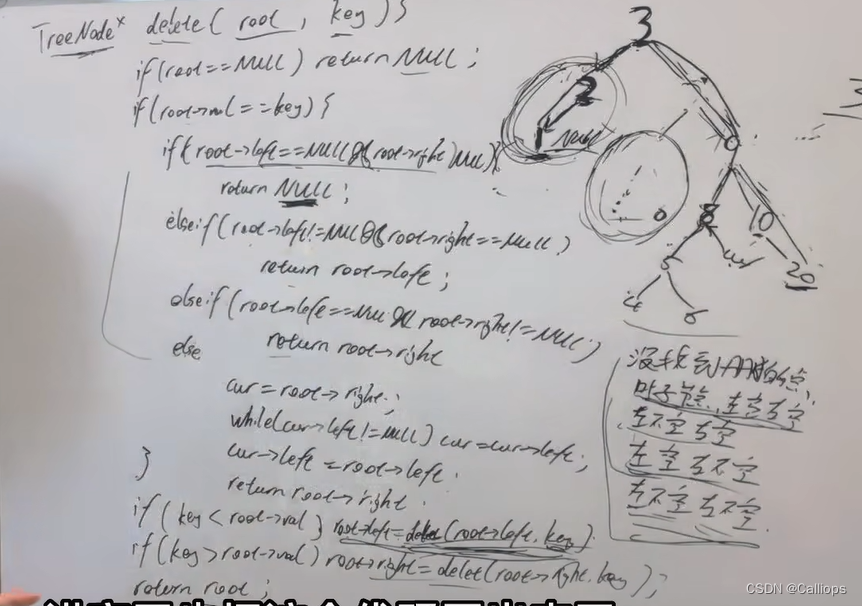 TreeNode* delete( root , key ) {
if(root==NULL) return NULL ;
if(root->val==key) {
if( root->left==NULL && root->right NULL){
return NULL ;
elseif(root->left!=NULL && root->right==NULL)
return root->left ;
elseif(root->left==NULL && root->right!=NULL)
return root->right
else
cur=root->right ;
while(cur->left!=NULL) cur=cur->left ;
cur->left = root->left .
return root->right .
}
if( key<root->val ) root->left=delet(root->left, key)
if(key>root->val) root->right=delet(root->right, key) ;
return root ;
3
2
NULL
10
20
5
6
没找到删的点
叶子节点, 左空右空
左不空右空
左空右不空
左不空右不空.
CSDN @Calliops